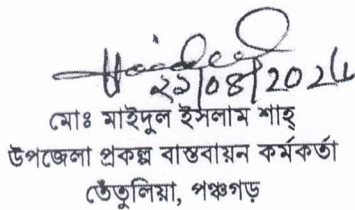 ২১/০৪/202৬
মোঃ মাইদুল ইসলাম শাহ্
উপজেলা প্রকল্প বাস্তবায়ন কর্মকর্তা
তেঁতুলিয়া, পঞ্চগড়